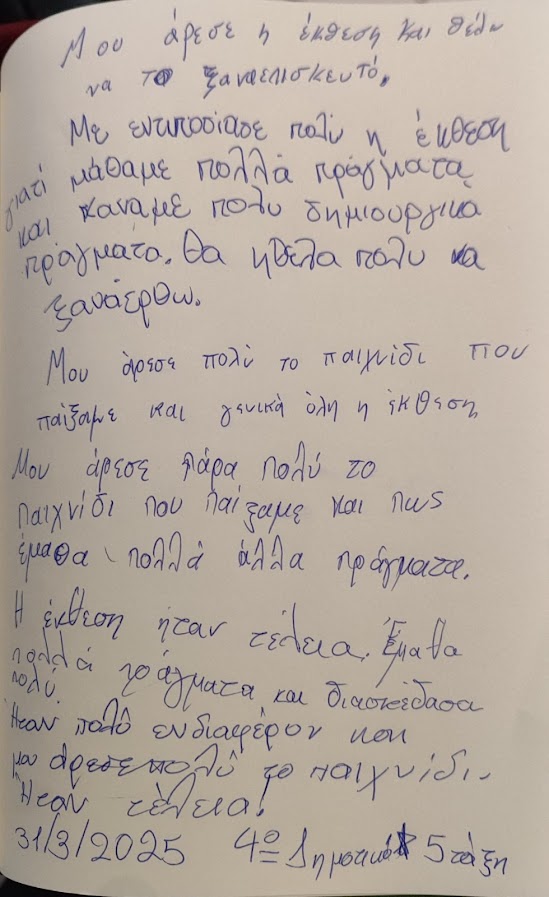 Μου άρεσε η έκθεση και θέλω
να το ξαναεπισκευτό.
Με εντιποσίασε πολύ η έκθεση
γιατί μάθαμε πολλά πράγματα
και κάναμε πολυ δημιουργικά
πράγματα. Θα ηθελα πολυ να
ξαναέρθω.
Μου άρεσε πολύ το παιχνίδι που
παίξαμε και γενικά όλη η έκθεση
Μου άρεσε πάρα πολύ το
παιχνίδι που παίξαμε και πως
έμαθα πολλά άλλα πράγματα.
Η έκθεση ήταν τέλεια. Έμαθα
πολλά πράγματα και διασκέδασα
πολύ.
Ήταν πολύ ενδιαφέρον και
μου άρεσε πολύ το παιχνίδι.
Ήταν τέλεια!
31/3/2025 4ο Δημοτικό 5 τάξη